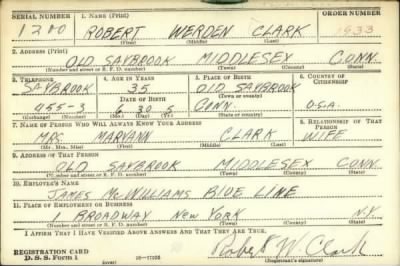 SERIAL NUMBER 1. NAME (Print) ORDER NUMBER
1200 ROBERT WERDEN CLARK 1933
(First) (Middle) (Last)
2. ADDRESS (Print)
OLD SAYBROOK MIDDLESEX CONN.
(Number and street or R. F. D. number) (Town) (County) (State)
3. TELEPHONE 4. AGE IN YEARS 5. PLACE OF BIRTH 6. COUNTRY OF CITIZENSHIP
SAYBROOK 35 OLD SAYBROOK
DATE OF BIRTH (Town or county)
455-3 6 30 5 CONN. U.S.A.
(Exchange) (Number) (Mo.) (Day) (Yr.) (State or country)
7. NAME OF PERSON WHO WILL ALWAYS KNOW YOUR ADDRESS 8. RELATIONSHIP OF THAT PERSON
MRS. MARYANN CLARK WIFE
(Mr., Mrs., Miss) (First) (Middle) (Last)
9. ADDRESS OF THAT PERSON
OLD SAYBROOK MIDDLESEX CONN.
(Number and street or R. F. D. number) (Town) (County) (State)
10. EMPLOYER'S NAME
JAMES McWILLIAMS BLUE LINE
11. PLACE OF EMPLOYMENT OR BUSINESS
1 BROADWAY NEW YORK N.Y.
(Number and street or R. F. D. number) (Town) (County) (State)
I AFFIRM THAT I HAVE VERIFIED ABOVE ANSWERS AND THAT THEY ARE TRUE.
REGISTRATION CARD Robert W. Clark
D. S. S. Form 1 (over) (Registrant's signature)